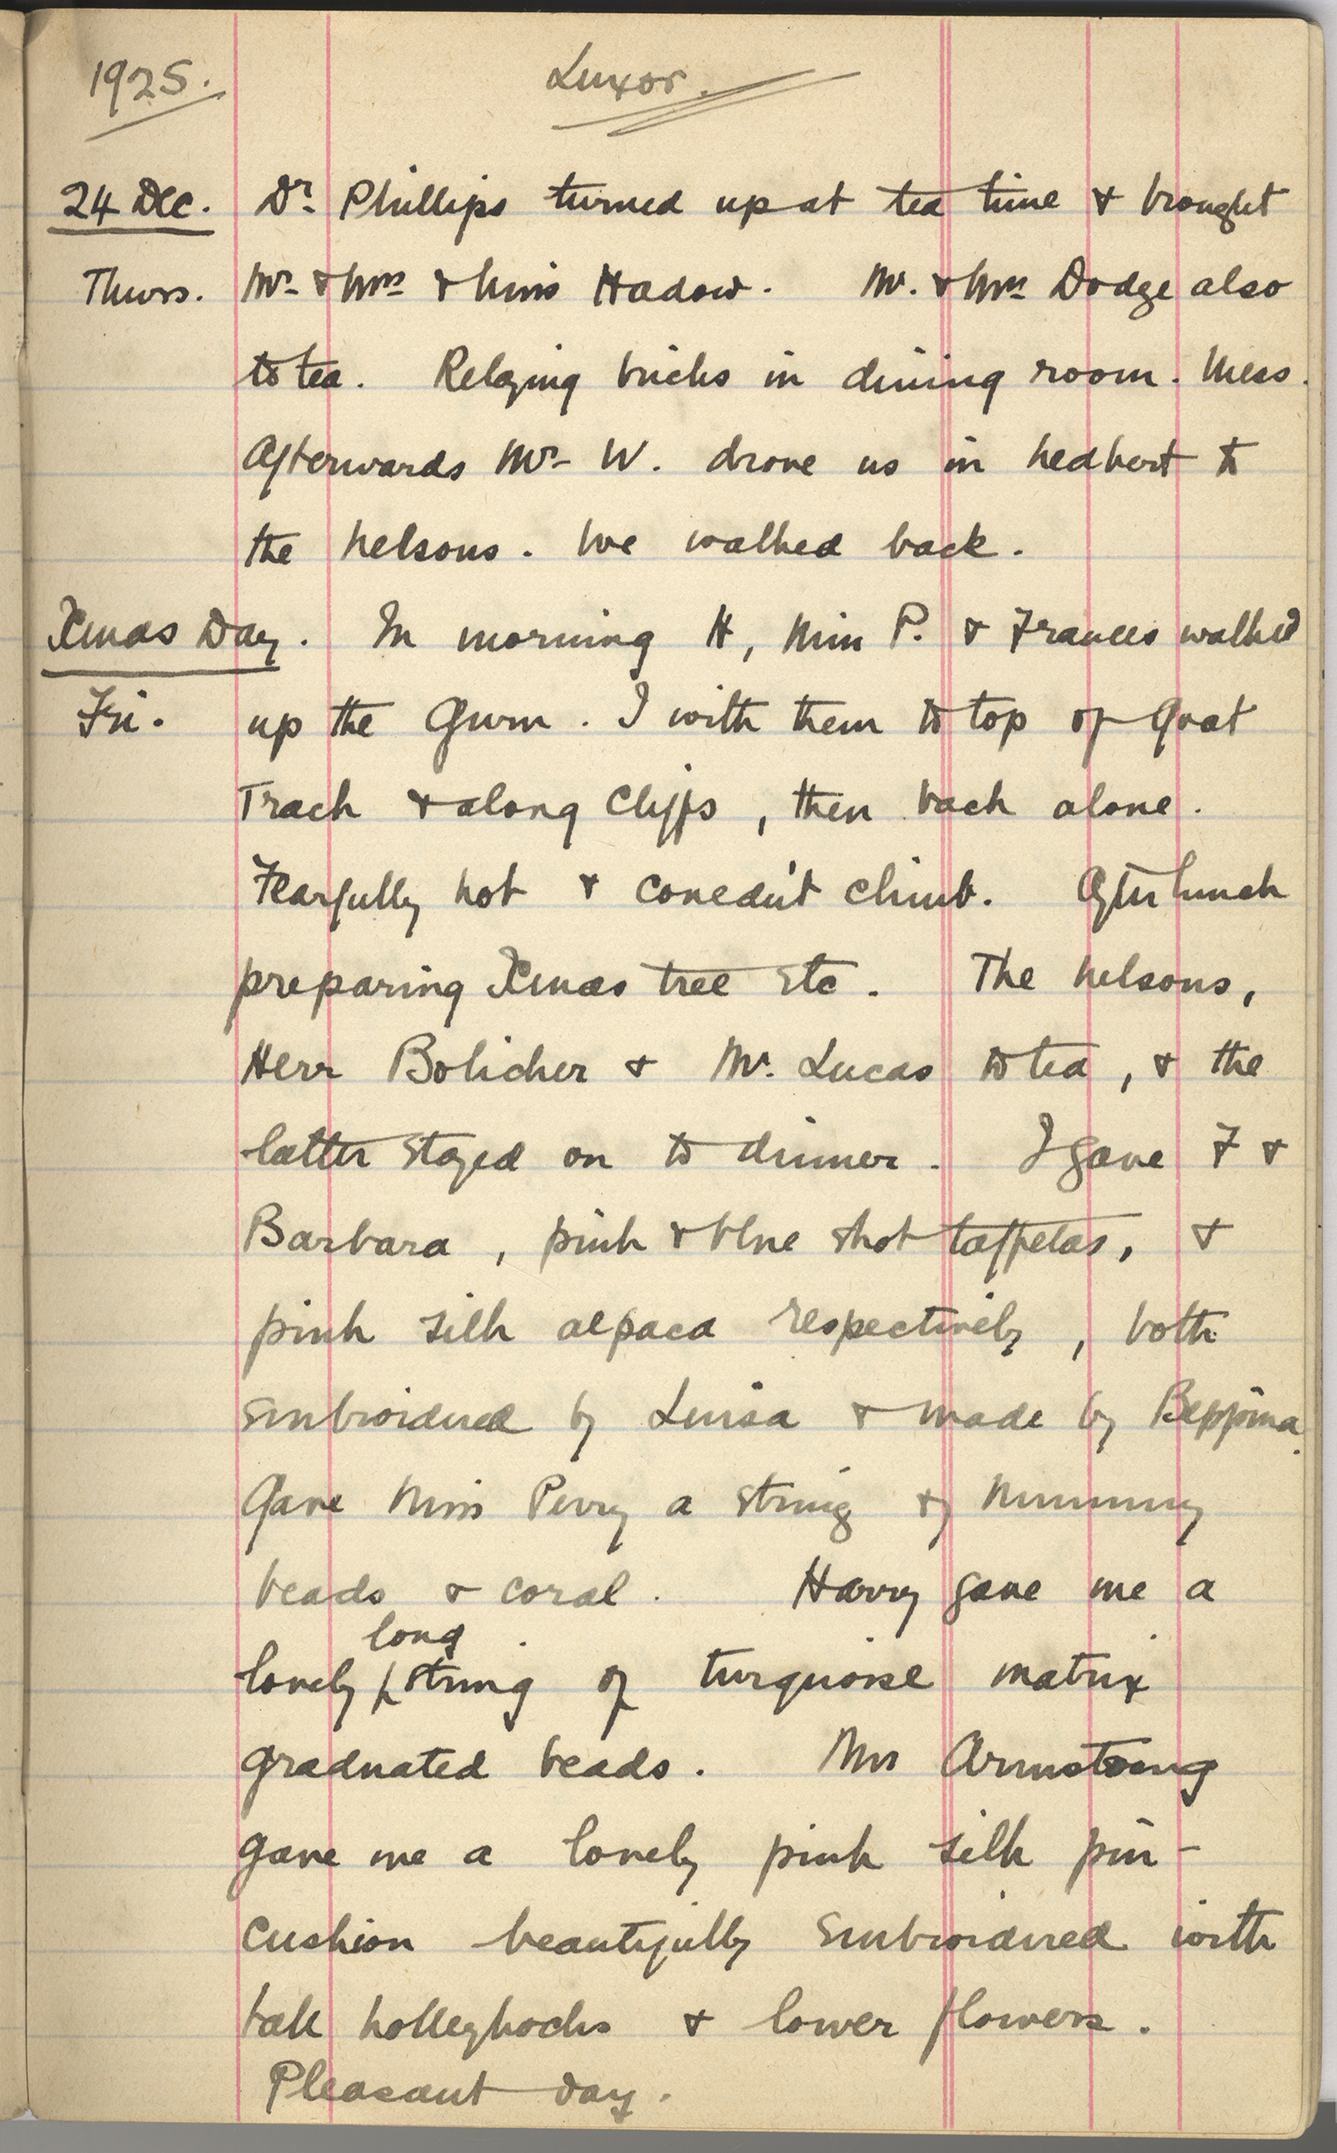 1925. Luxor.
24 Dec. Dr. Phillips turned up at tea time & brought
Thurs. Mr. & Mrs & Miss Hadow. Mr. & Mrs Dodge also
to tea. Relaying bricks in dining room. Mess.
Afterwards Mr. W. drove us in hedbert to
the Nelsons. We walked back.
Xmas Day. In morning H, Miss P. & Frances walked
Fri. up the Gurn. I with them to top of Goat
Track & along cliffs, then back alone.
Fearfully hot & couldn't climb. After lunch
preparing Xmas tree etc. The Nelsons,
Herr Bolicher & Mr. Lucas to tea, & the
latter stayed on to dinner. I gave F &
Barbara, pink & blue shot taffetas, &
pink silk alpaca respectively, both
embroidered by Luisa & made by Beppina.
Gave Miss Perry a string of mummy
beads & coral. Harry gave me a
long
lovely string of turquoise matrix
graduated beads. Mrs Armstrong
gave me a lovely pink silk pin-
cushion beautifully embroidered with
tall holleyhocks & lower flowers.
Pleasant day.